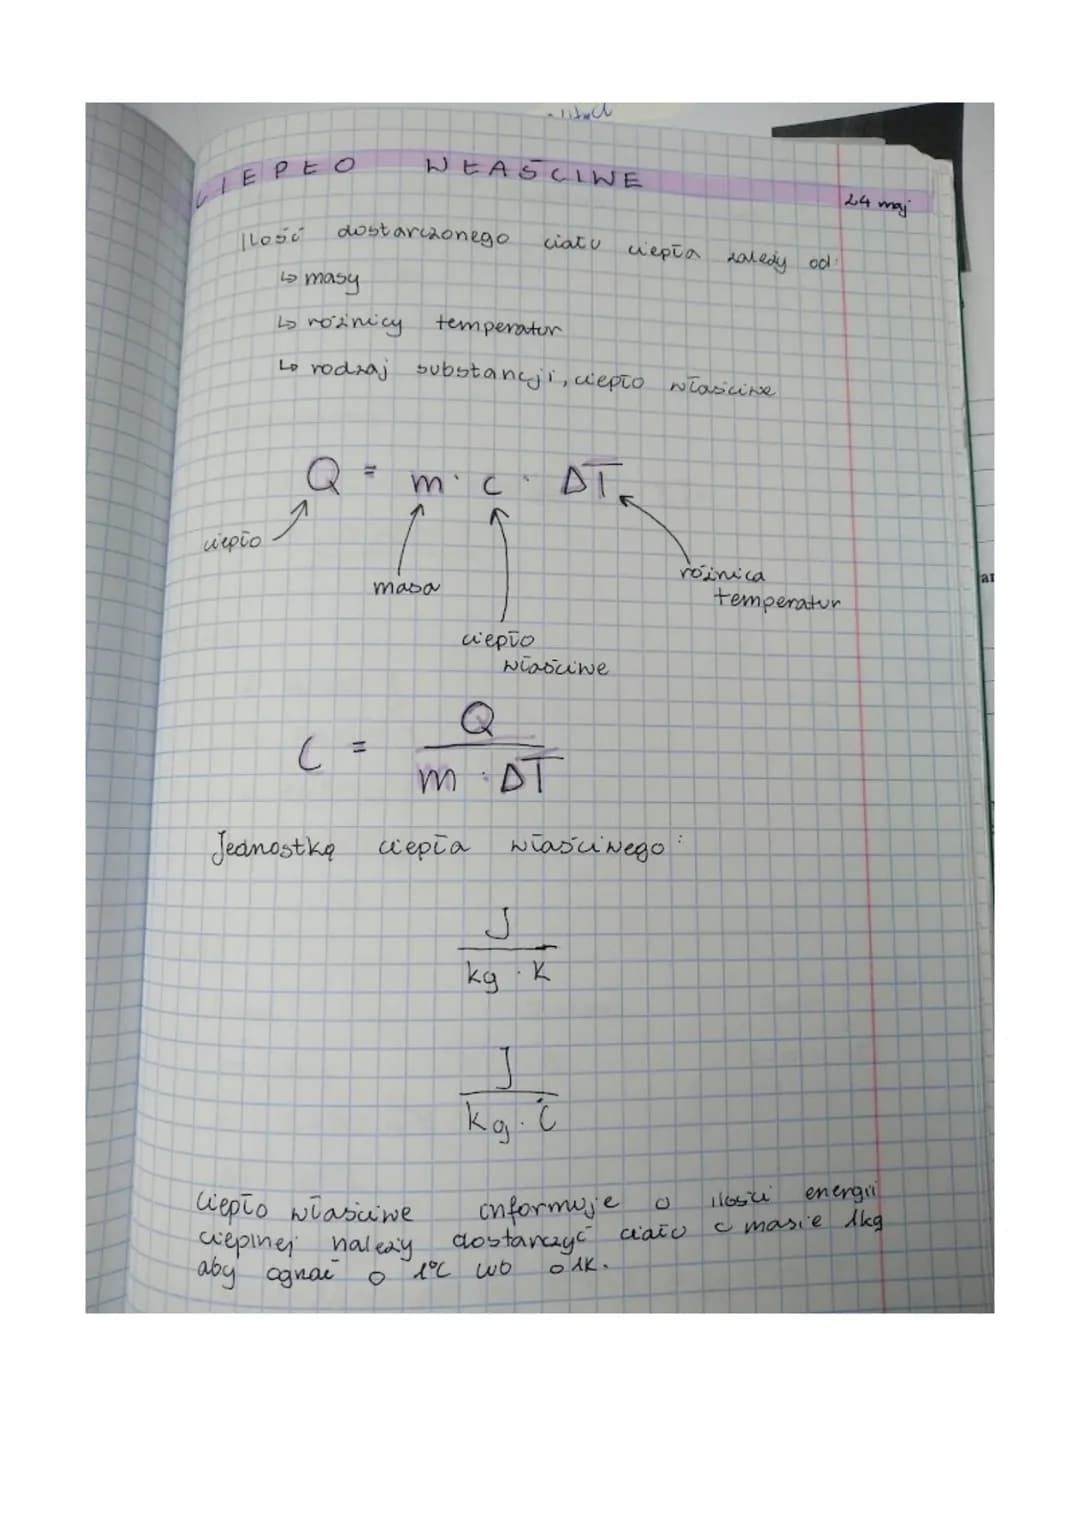 CIEPŁO WŁAŚCIWE
24 maj
Ilość dostarczonego ciału ciepła zależy od:
↳ masy
↳ różnicy temperatur
↳ rodzaj substancji, ciepło właściwe
Q = m · c · ΔT
ciepło
masa
różnica
temperatur
ciepło
właściwe
C = Q
m · ΔT
Jednostką ciepła właściwego:
J
kg · K
J
kg · °C
Ciepło właściwe informuje o ilości energii
cieplnej należy dostarczyć ciału o masie 1kg
aby ogrzać o 1°C lub o 1K.